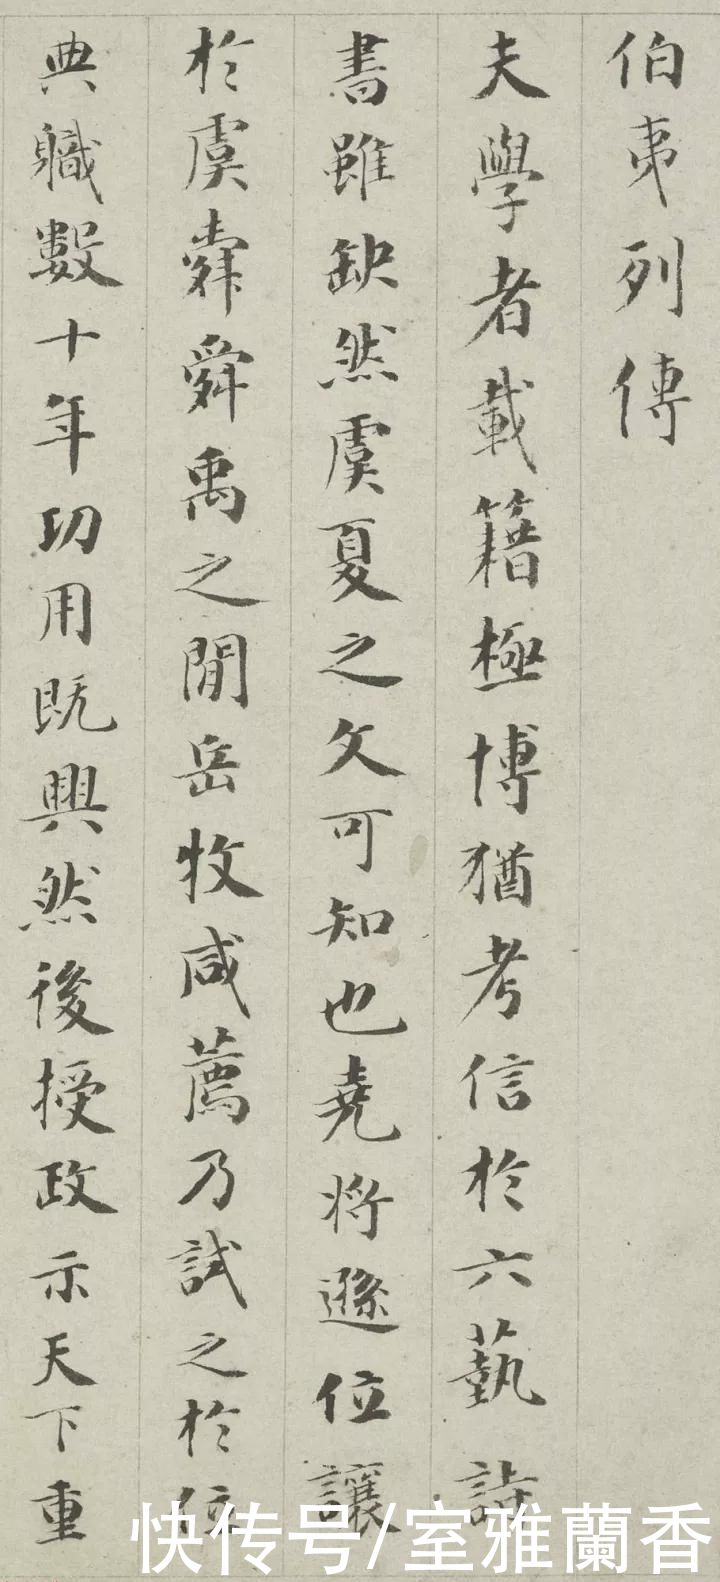 伯夷列傳
夫學者載籍極博猶考信於六藝詩
書雖缺然虞夏之文可知也堯將遜位讓
於虞舜舜禹之閒岳牧咸薦乃試之於位
典軄數十年功用既興然後授政示天下重
快传号/室雅蘭香